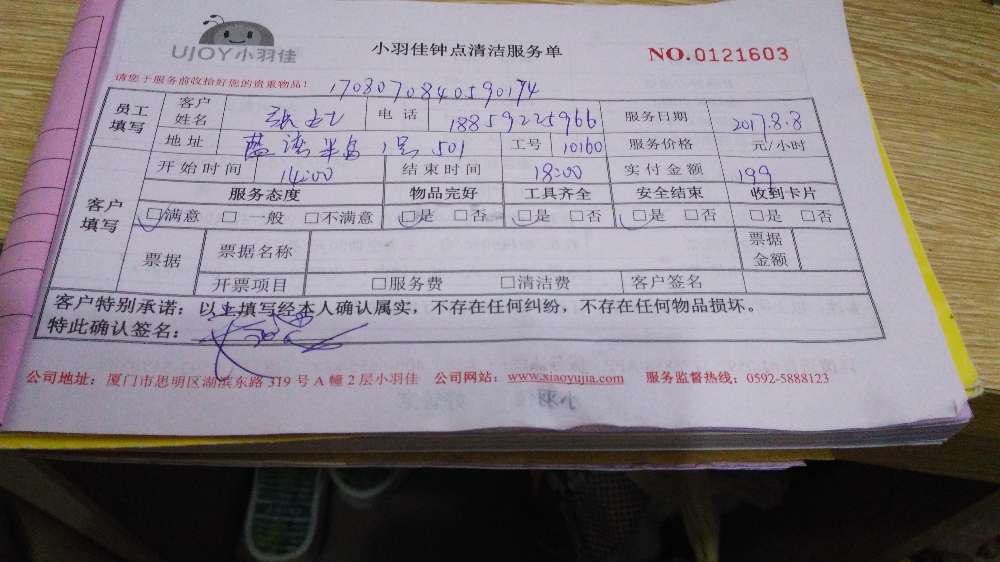 UJOY小羽佳
小羽佳钟点清洁服务单
NO.0121603
请您于服务前收拾好您的贵重物品!
1708070840590174
员工填写 客户姓名 张女士 电话 18859225966 服务日期 2017.8.8
地址 蓝湾半岛1号501 工号 10160 服务价格 元/小时
客户填写 开始时间 14:00 结束时间 18:00 实付金额 199
服务态度 物品完好 工具齐全 安全结束 收到卡片
□满意 □一般 □不满意 □是 □否 □是 □否 □是 □否 □是 □否
票据 票据名称 票据金额
开票项目 □服务费 □清洁费 客户签名
客户特别承诺：以上填写经本人确认属实，不存在任何纠纷，不存在任何物品损坏。
特此确认签名：
公司地址：厦门市思明区湖滨东路319号A幢2层小羽佳 公司网站：www.xiaoyujia.com 服务监督热线：0592-5888123